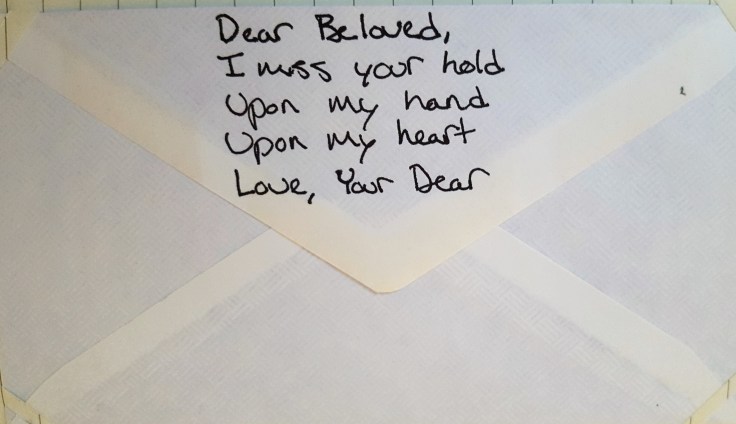 Dear Beloved,
I miss your hold
Upon my hand
Upon my heart
Love, Your Dear